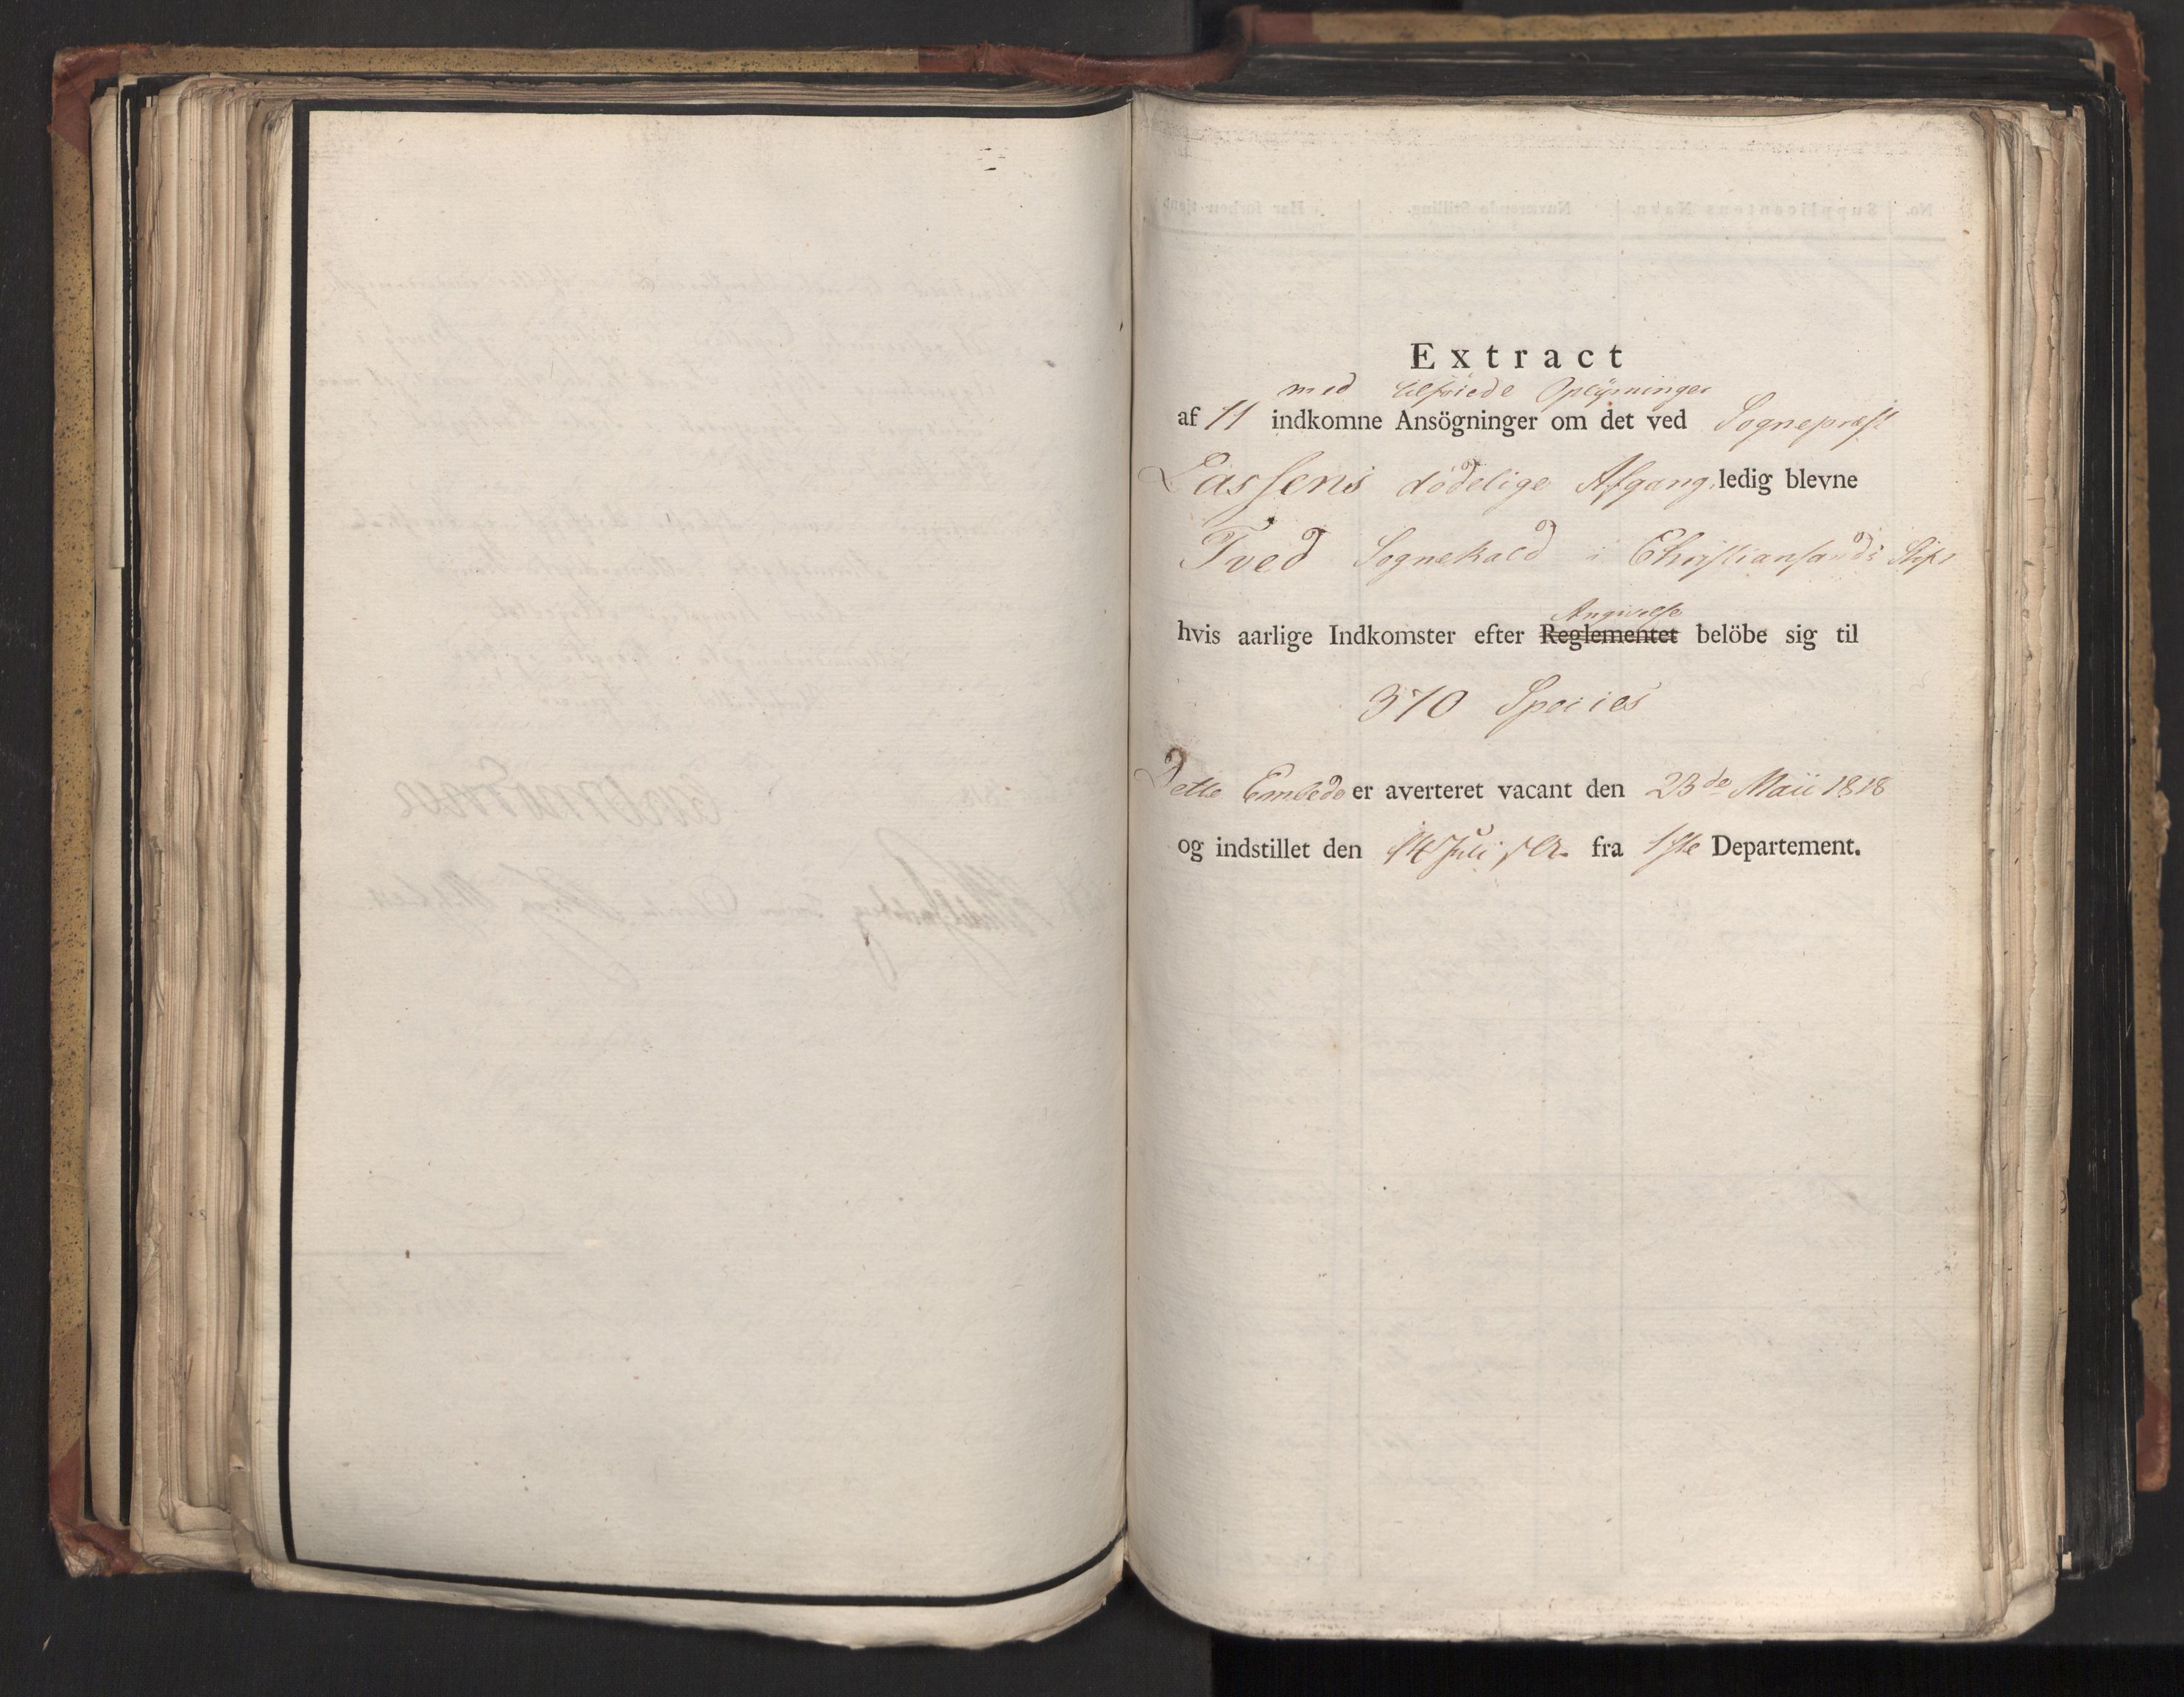 Extract
med tilføiede Oplysninger
af 11 indkomne Ansögninger om det ved Sognepræst
Lassens dødelige Afgang ledig blevne
Tved Sognekald i Christiansands Stift
Angivelse
hvis aarlige Indkomster efter Reglementet belöbe sig til
370 Species
Dette Embede er averteret vacant den 23de Maii 1818
og indstillet den 14 Juli s. A. fra 1ste Departement.